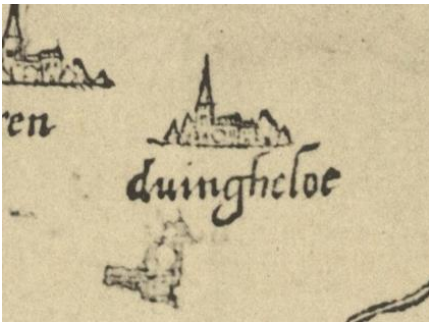 ren
duingheloe